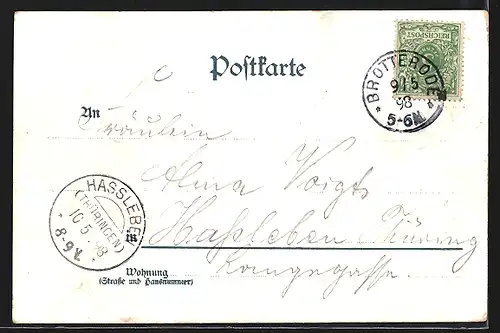 Postkarte
REICHSPOST
* BROTTERODE *
9 5
98
5-6N.
An
Fräulein
Alma Voigts
HASSLEBEN
(THÜRINGEN)
10 5 98
* 8-9V.
in
Hassleben Thüring
Langegasse.
Wohnung
(Straße und Hausnummer)